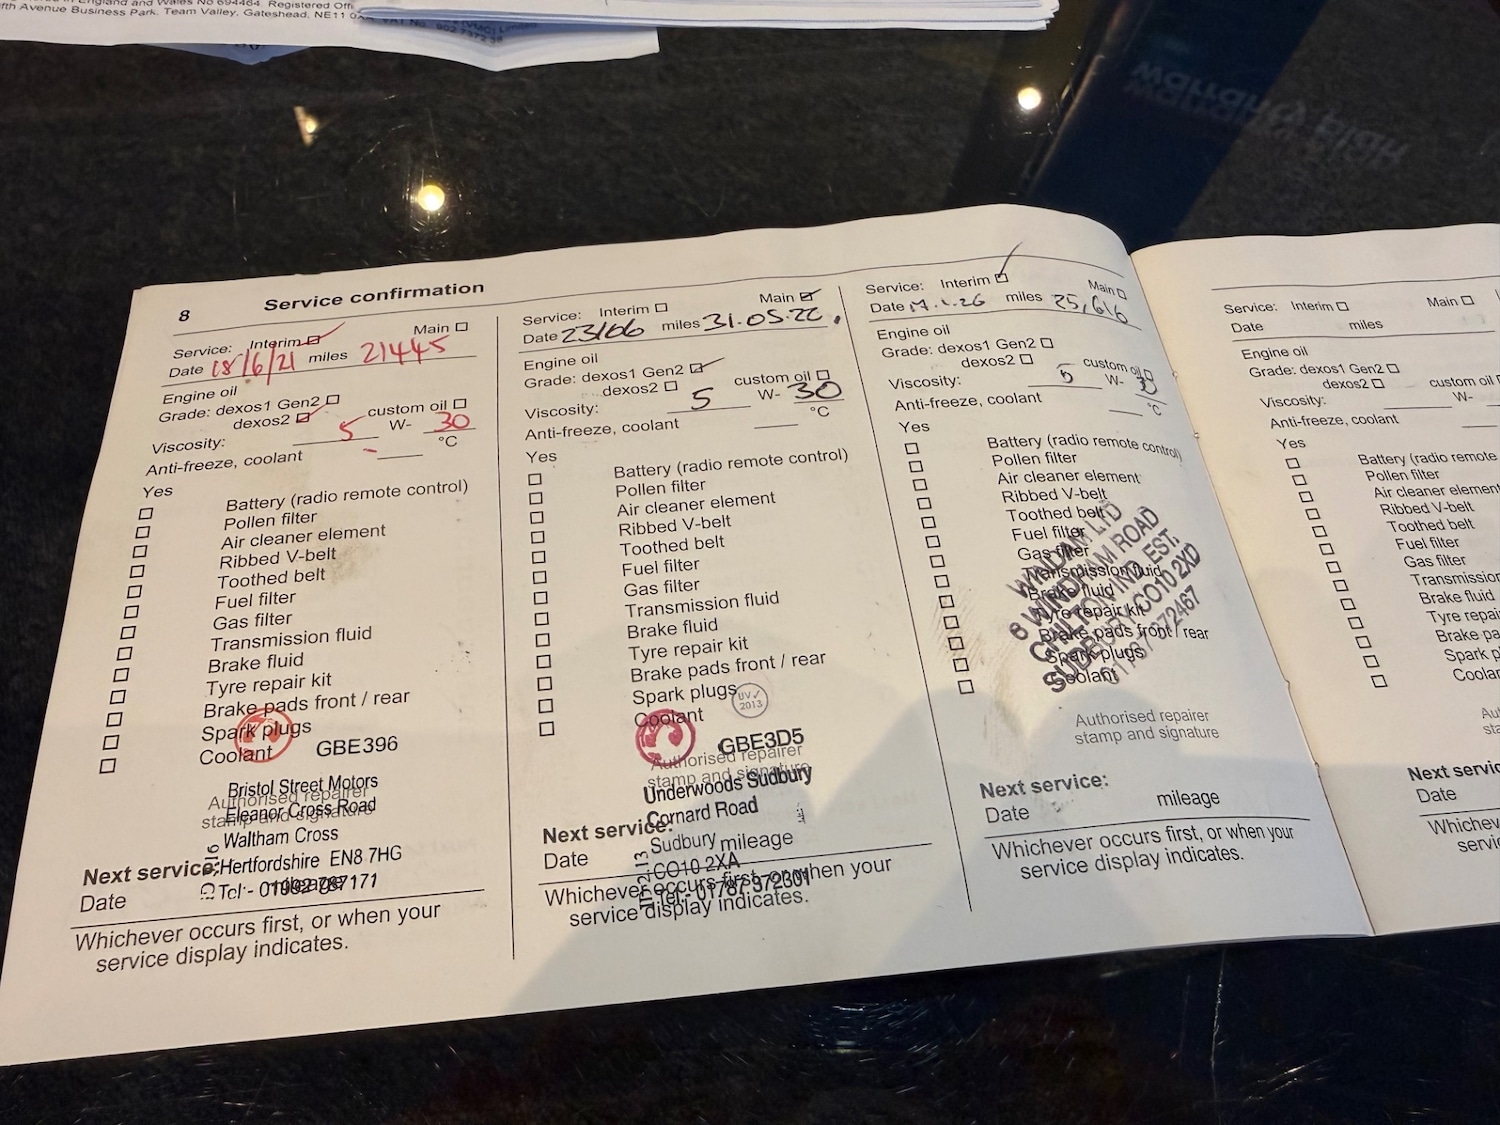 England and Wales No 694464. Registered Offi
fth Avenue Business Park. Team Valley, Gateshead, NE11 0
VAT No. 902 7372 38
warranty
8
Service confirmation
Service: Interim ☑ Main ☐
Date 18/6/21 miles 21445
Engine oil
Grade: dexos1 Gen2 ☐
dexos2 ☑ custom oil ☐
Viscosity: 5 W- 30
Anti-freeze, coolant - °C
Yes
☐ Battery (radio remote control)
☐ Pollen filter
☐ Air cleaner element
☐ Ribbed V-belt
☐ Toothed belt
☐ Fuel filter
☐ Gas filter
☐ Transmission fluid
☐ Brake fluid
☐ Tyre repair kit
☐ Brake pads front / rear
☐ Spark plugs
☐ Coolant
GBE396
Authorised repairer
stamp and signature
Bristol Street Motors
Eleanor Cross Road
Waltham Cross
Hertfordshire EN8 7HG
Tel:- 01992 787171
Next service:
Date mileage
Whichever occurs first, or when your
service display indicates.
Service: Interim ☐ Main ☑
Date 23106 miles 31.05.22.
Engine oil
Grade: dexos1 Gen2 ☑
dexos2 ☐ custom oil ☐
Viscosity: 5 W- 30
Anti-freeze, coolant °C
Yes
☐ Battery (radio remote control)
☐ Pollen filter
☐ Air cleaner element
☐ Ribbed V-belt
☐ Toothed belt
☐ Fuel filter
☐ Gas filter
☐ Transmission fluid
☐ Brake fluid
☐ Tyre repair kit
☐ Brake pads front / rear
☐ Spark plugs
☐ Coolant
UV✓
2013
GBE3D5
Authorised repairer
stamp and signature
Underwoods Sudbury
Cornard Road
Sudbury
CO10 2XA
Tel:- 01787 372301
Next service:
Date mileage
Whichever occurs first, or when your
service display indicates.
Service: Interim ☑ Main ☐
Date .26 miles 25,616
Engine oil
Grade: dexos1 Gen2 ☐
dexos2 ☐ custom oil ☐
Viscosity: 5 W- 30
Anti-freeze, coolant °C
Yes
☐ Battery (radio remote control)
☐ Pollen filter
☐ Air cleaner element
☐ Ribbed V-belt
☐ Toothed belt
☐ Fuel filter
☐ Gas filter
☐ Transmission fluid
☐ Brake fluid
☐ Tyre repair kit
☐ Brake pads front / rear
☐ Spark plugs
☐ Coolant
LTD
6 WINDHAM ROAD
CHILTON IND. EST.
SUDBURY CO10 2XD
01787 372467
Authorised repairer
stamp and signature
Next service:
Date mileage
Whichever occurs first, or when your
service display indicates.
Service: Interim ☐ Main ☐
Date miles
Engine oil
Grade: dexos1 Gen2 ☐
dexos2 ☐ custom oil
Viscosity: W-
Anti-freeze, coolant
Yes
☐ Battery (radio remote
☐ Pollen filter
☐ Air cleaner element
☐ Ribbed V-belt
☐ Toothed belt
☐ Fuel filter
☐ Gas filter
☐ Transmission
☐ Brake fluid
☐ Tyre repai
☐ Brake pa
☐ Spark p
☐ Coolan
Next servic
Date
Whichev
servic